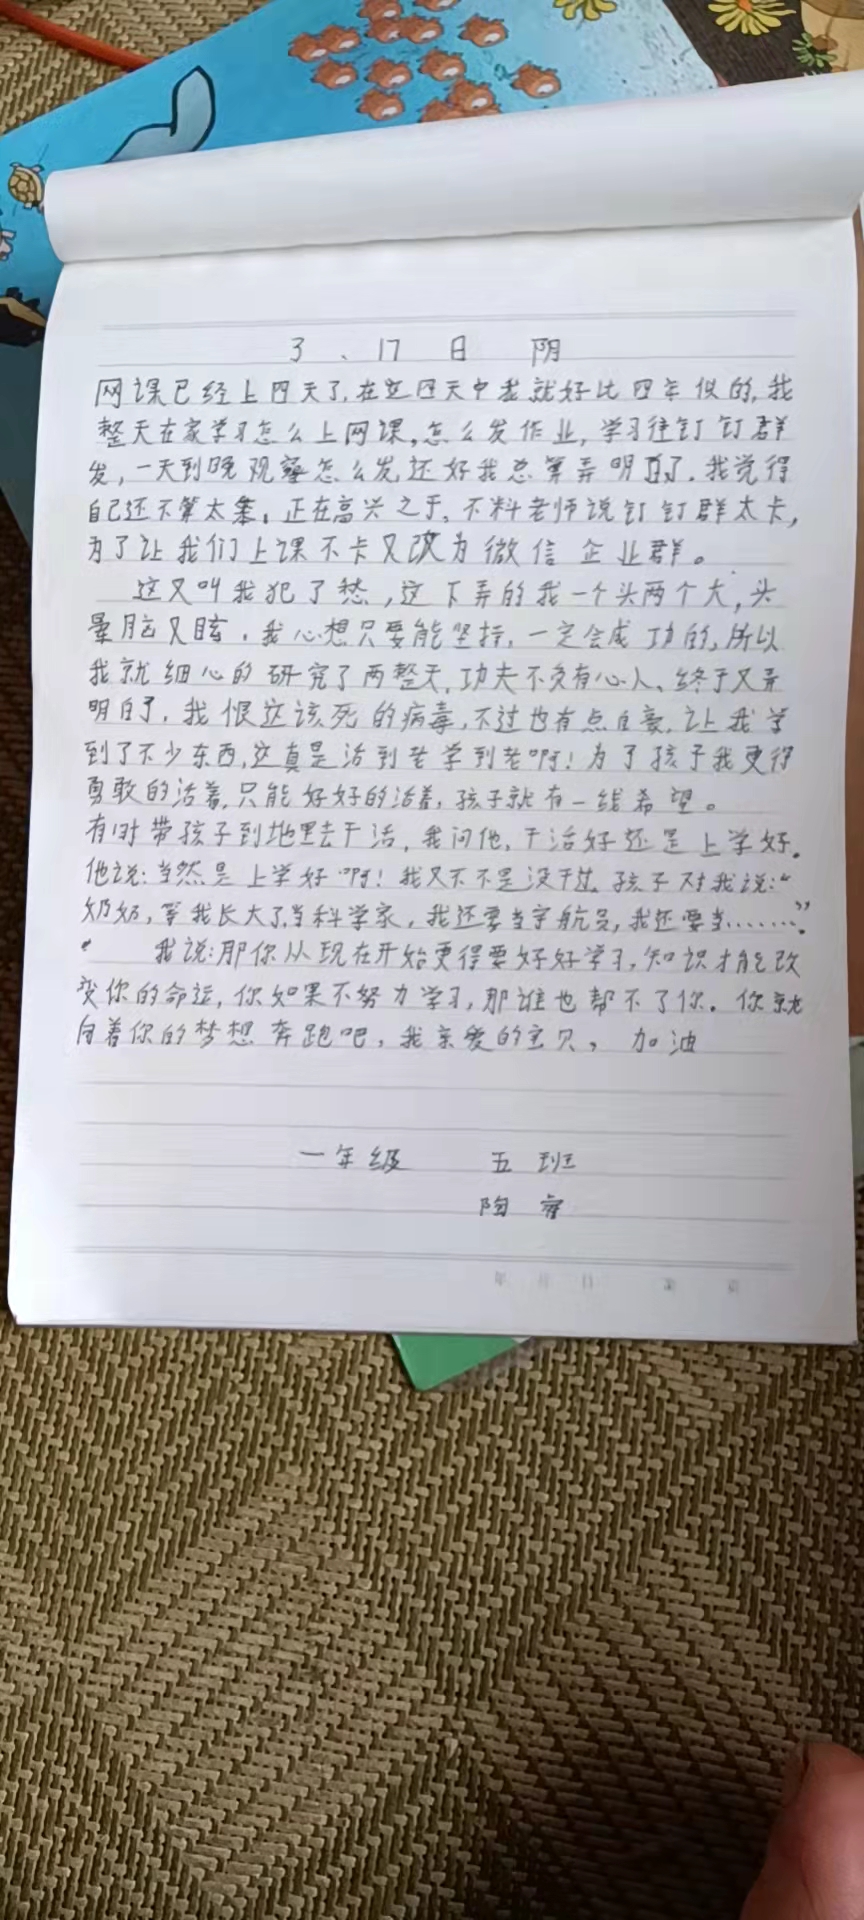 3、17日 阴
网课已经上四天了,在这四天中我就好比四年似的,我
整天在家学习怎么上网课,怎么发作业,学习往钉钉群
发,一天到晚观察怎么发还好我总算弄明白了.我觉得
自己还不算太笨,正在高兴之于,不料老师说钉钉群太卡,
为了让我们上课不卡又改为微信企业群。
这又叫我犯了愁,这下弄的我一个头两个大,头
晕脑又眩.我心想只要能坚持,一定会成功的,所以
我就细心的研究了两整天,功夫不负有心人、终于又弄
明白了,我恨这该死的病毒,不过也有点自豪,让我学
到了不少东西,这真是活到老学到老啊!为了孩子我更得
勇敢的活着,只能好好的活着,孩子就有一线希望。
有时带孩子到地里去干活,我问他,干活好还是上学好.
他说:当然是上学好啊!我又不不是没干过.孩子对我说:“
奶奶,等我长大了,当科学家,我还要当宇航员,我还要当.......”
我说:那你从现在开始更得要好好学习,知识才能改
变你的命运,你如果不努力学习,那谁也帮不了你.你就
向着你的梦想奔跑吧,我亲爱的宝贝,加油
一年级 五班
陶
年 月 日 第 页